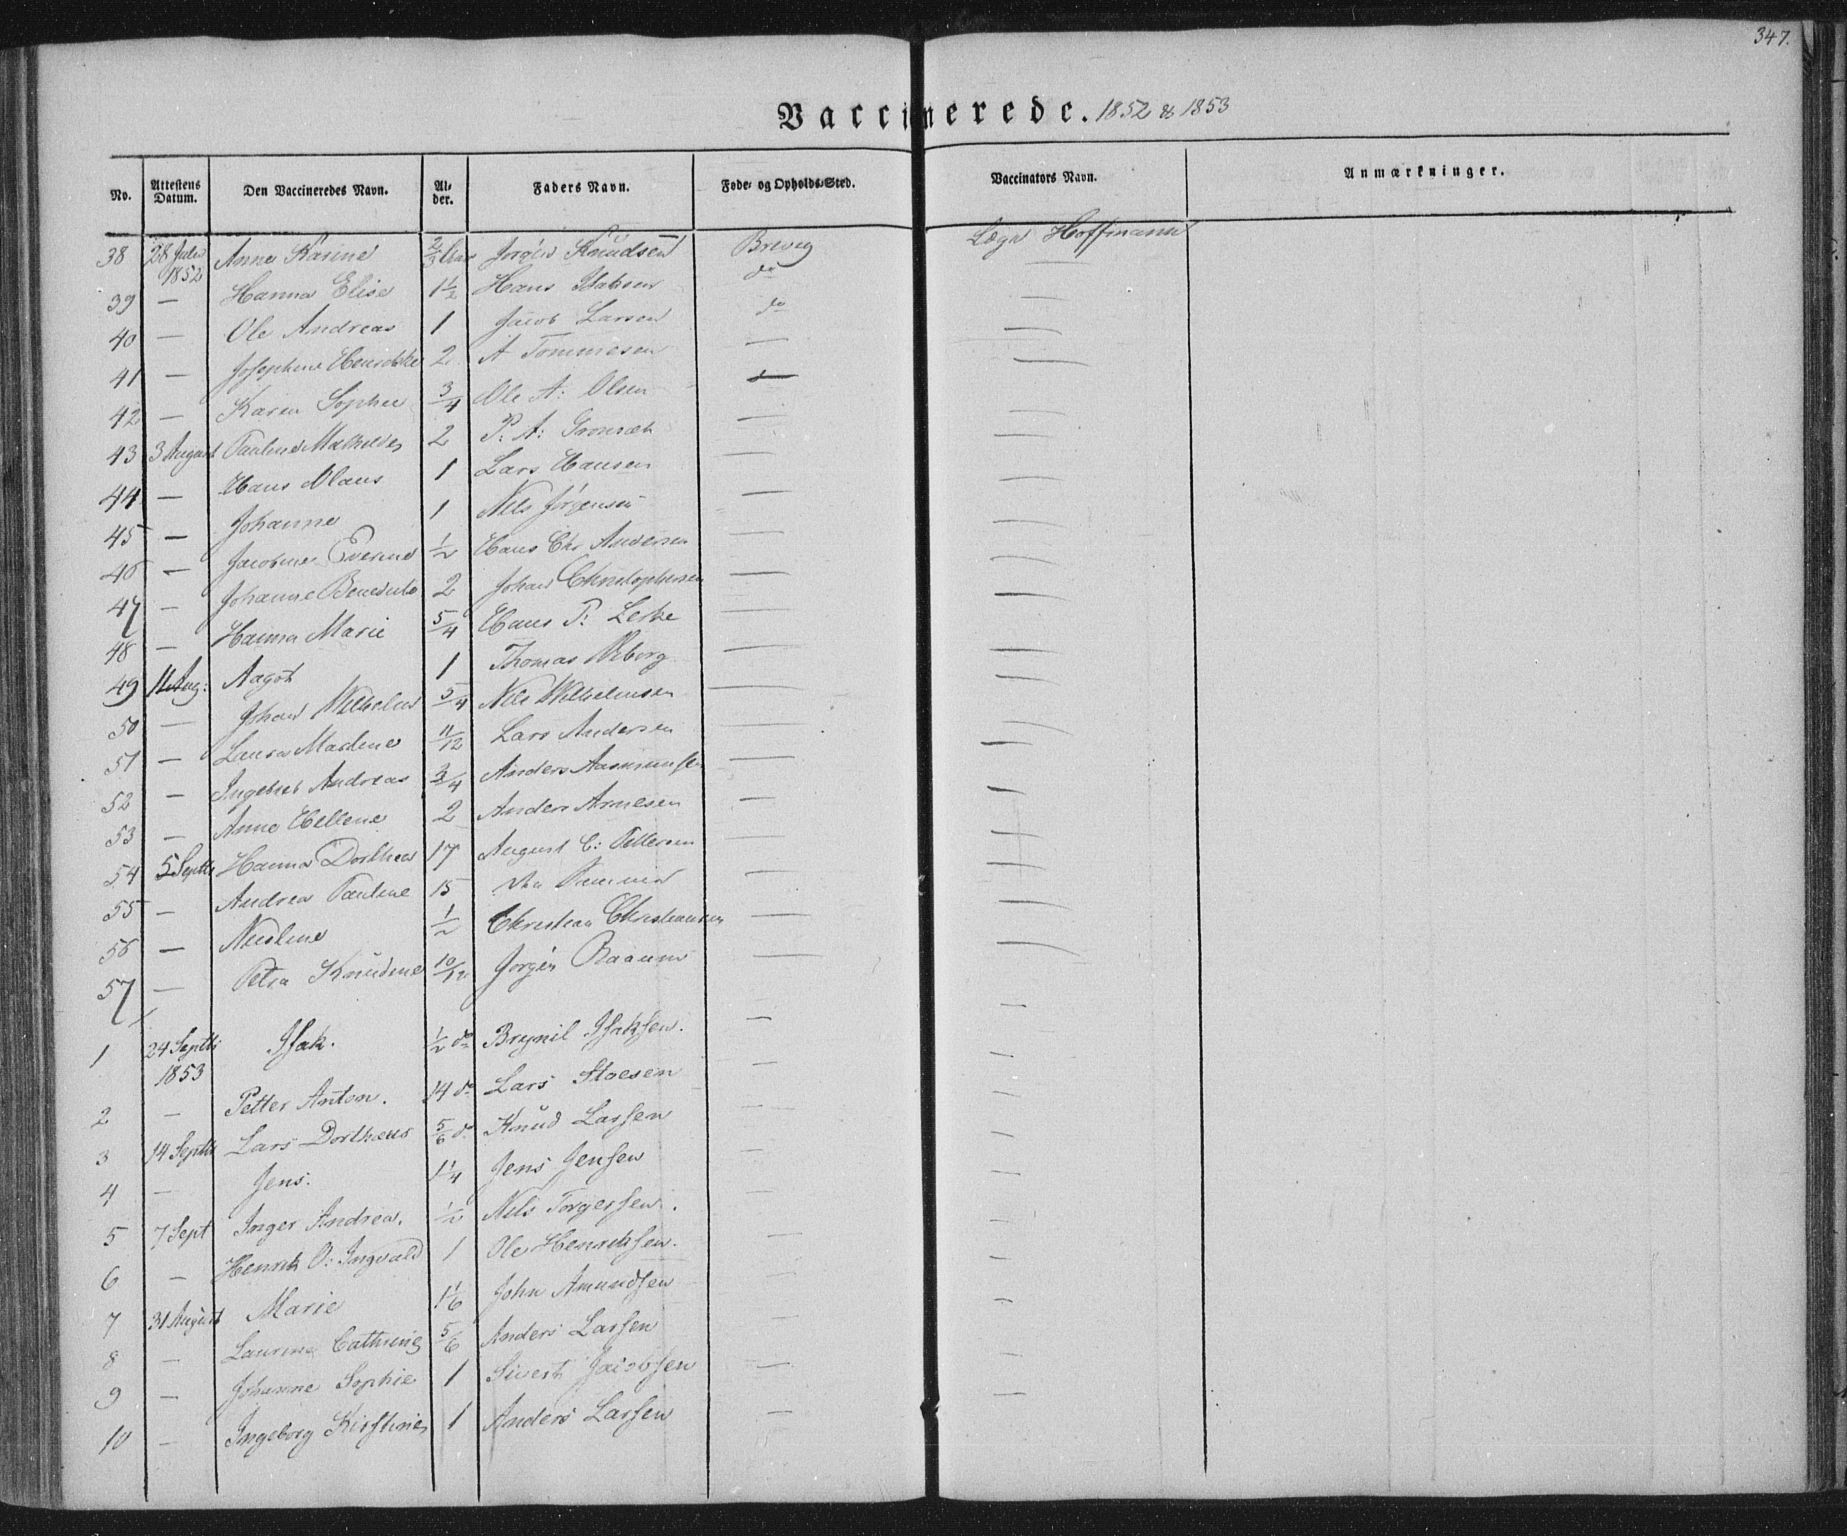 347.
Vaccinerede. 1852 & 1853
No. Attestens Datum. Den Vaccineredes Navn. Al-der. Faders Navn. Føde- og Opholds-Sted. Vaccinators Navn. Anmærkninger.
38 28 Julii 1852 Anne Karine Jørgen Knudsen Brevig Læge Hoffmann
39 — Hanna Elise 1 1/2 Hans do —
40 — Ole Andreas 1 Jacob Larsen do —
41 — Josephine 2 A Tommesen — —
42 — Karen Sophie 3/4 Ole A: Olsen — —
43 3 August Pauline Mathilde 2 P: A: — —
44 — Hans Olaus 1 Lars Hansen — —
45 — Johanne 1 Nils Jörgensen — —
46 — Jacobine Everine 1/2 Hans Chr Andersen — —
47 — Johanne Benedicte 2 Johan Christophersen — —
48 — Hanna Marie 5/4 Hans P: — —
49 11 Aug: Aagot 1 Thomas Wiborg — —
50 — Johan Wilhelm 5/4 Nils Wilhelmsen — —
51 — Laura Madene 11/12 Lars Andersen — —
52 — Ingebret Andreas 3/4 Anders Aasmunsen — —
53 — Anne Hellene 2 Anders Arnesen — —
54 5 Septb Hanna Dorthea 17 August C: Pettersen — —
55 — Andrea Pauline 15 — —
56 — Nicoline 1/2 Christian Christiansen — —
57 — Petra Knudine 10/12 Jørgen Raaum — —
1 24 Septb 1853 Isak. 1/2 do Brynil Isaksen. — —
2 — Petter Anton. 14 do Lars Stoesen — —
3 14 Septb Lars Dortheus 5/6 do Knud Larsen — —
4 — Jens. 1 1/4 Jens Jensen — —
5 7 Sept Inger Andrea. 1/2 Nils Torgersen. — —
6 — Henrik O: Ingvald 1 Ole Henriksen. — —
7 31 August Marie 1 1/6 John Amundsen — —
8 — Laurine Cathrine 5/6 Anders Larsen — —
9 — Johanne Sophie 1 Sivert Jacobsen — —
10 — Ingeborg Kirstine 1 Anders Larsen — —